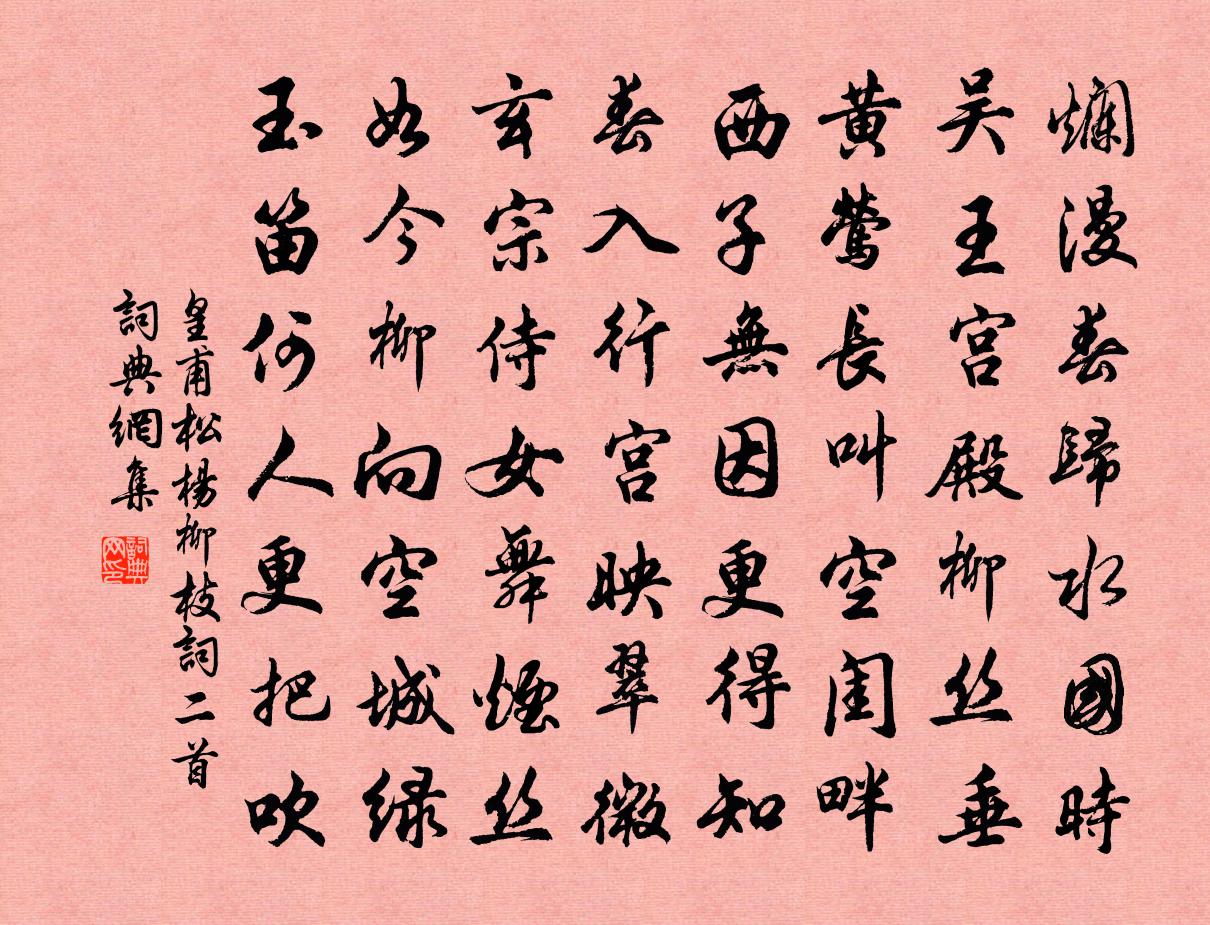 爛漫春歸水國時
吳王宮殿柳丝垂
黃鶯長叫空閨畔
西子無因更得知
春入行宮映翠微
玄宗侍女舞煙丝
如今柳向空城綠
玉笛何人更把吹
皇甫松楊柳枝詞二首
詞典網集
詞典网印